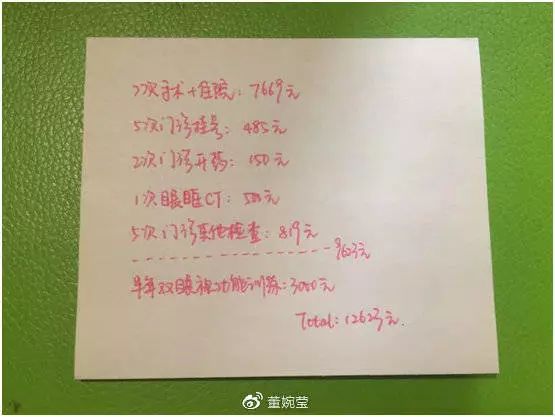 2次手术+住院：7669元
5次门诊挂号：485元
2次门诊开药：150元
1次眼眶CT：500元
5次门诊其他检查：819元
9623元
半年双眼视功能训练：3000元
Total：12623元.
董婉莹